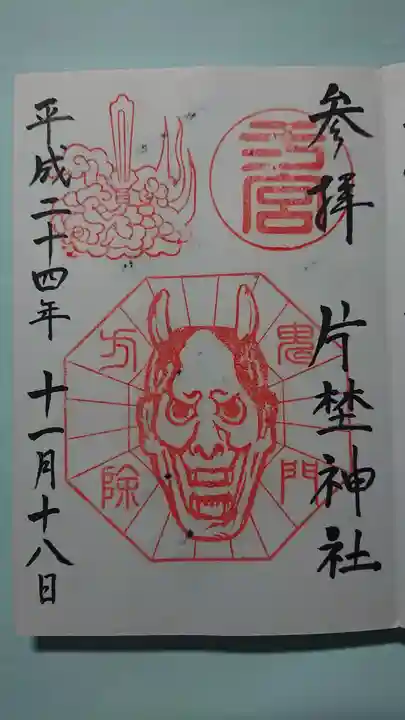 参拝 片埜神社
一宮
鬼門
方除
平成二十四年 十一月十八日